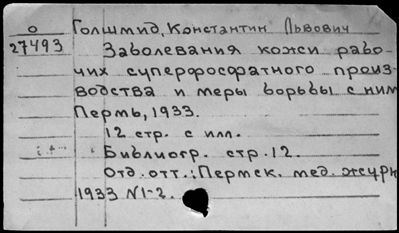 О Голшмид, Константин Львович
27493 Заболевания кожи рабо-
чих суперфосфатного произ-
водства и меры борьбы с ним
Пермь, 1933.
12 стр. с илл.
Библиогр. стр. 12.
Отд. отт.: Пермск. мед. журн
1933 N1-2.